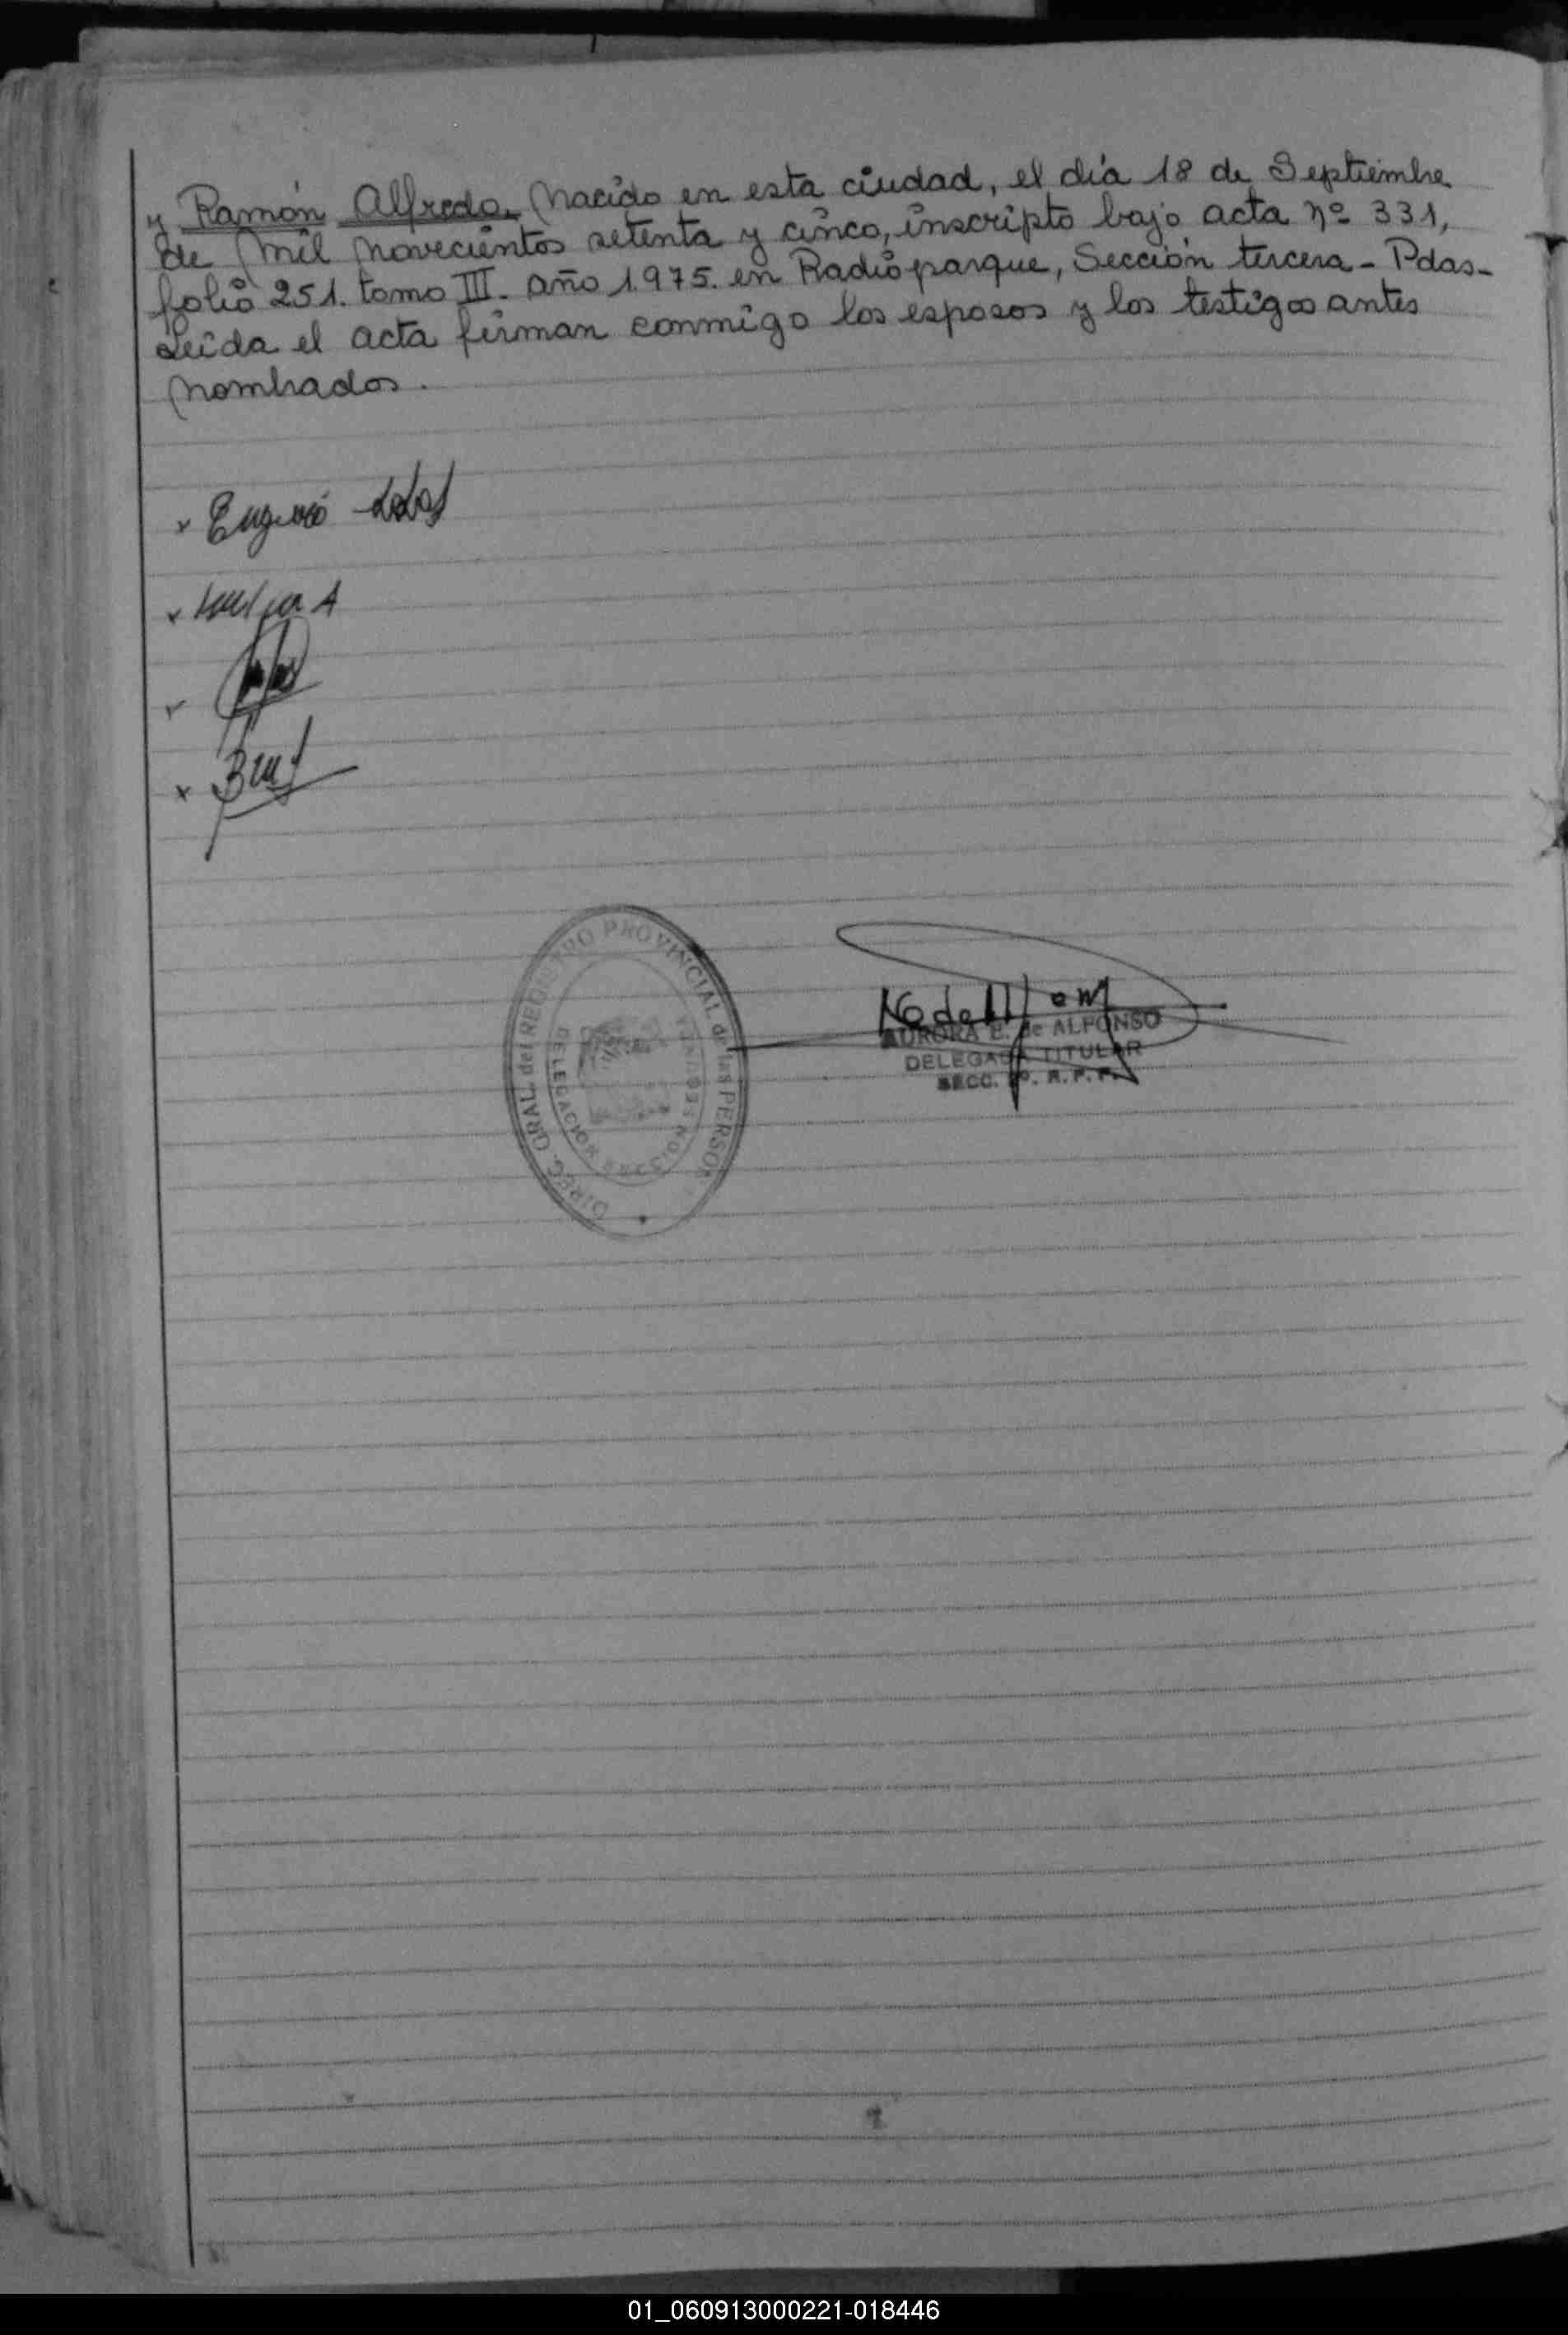 y Ramón Alfredo, nacido en esta ciudad, el día 18 de Septiembre
de mil novecientos setenta y cinco, inscripto bajo acta nº 331,
folio 251. tomo III. año 1.975. en Radio parque, Sección tercera - Pdas-
Leida el acta firman conmigo los esposos y los testigos antes
nombrados.
x Eugenio
x
x
DIREC. GRAL. del REGISTRO PROVINCIAL de las PERSON
DELEGACION SECC.
AURORA E. de ALFONSO
DELEGADA TITULAR
SECC. R.P.P.
01_060913000221-018446